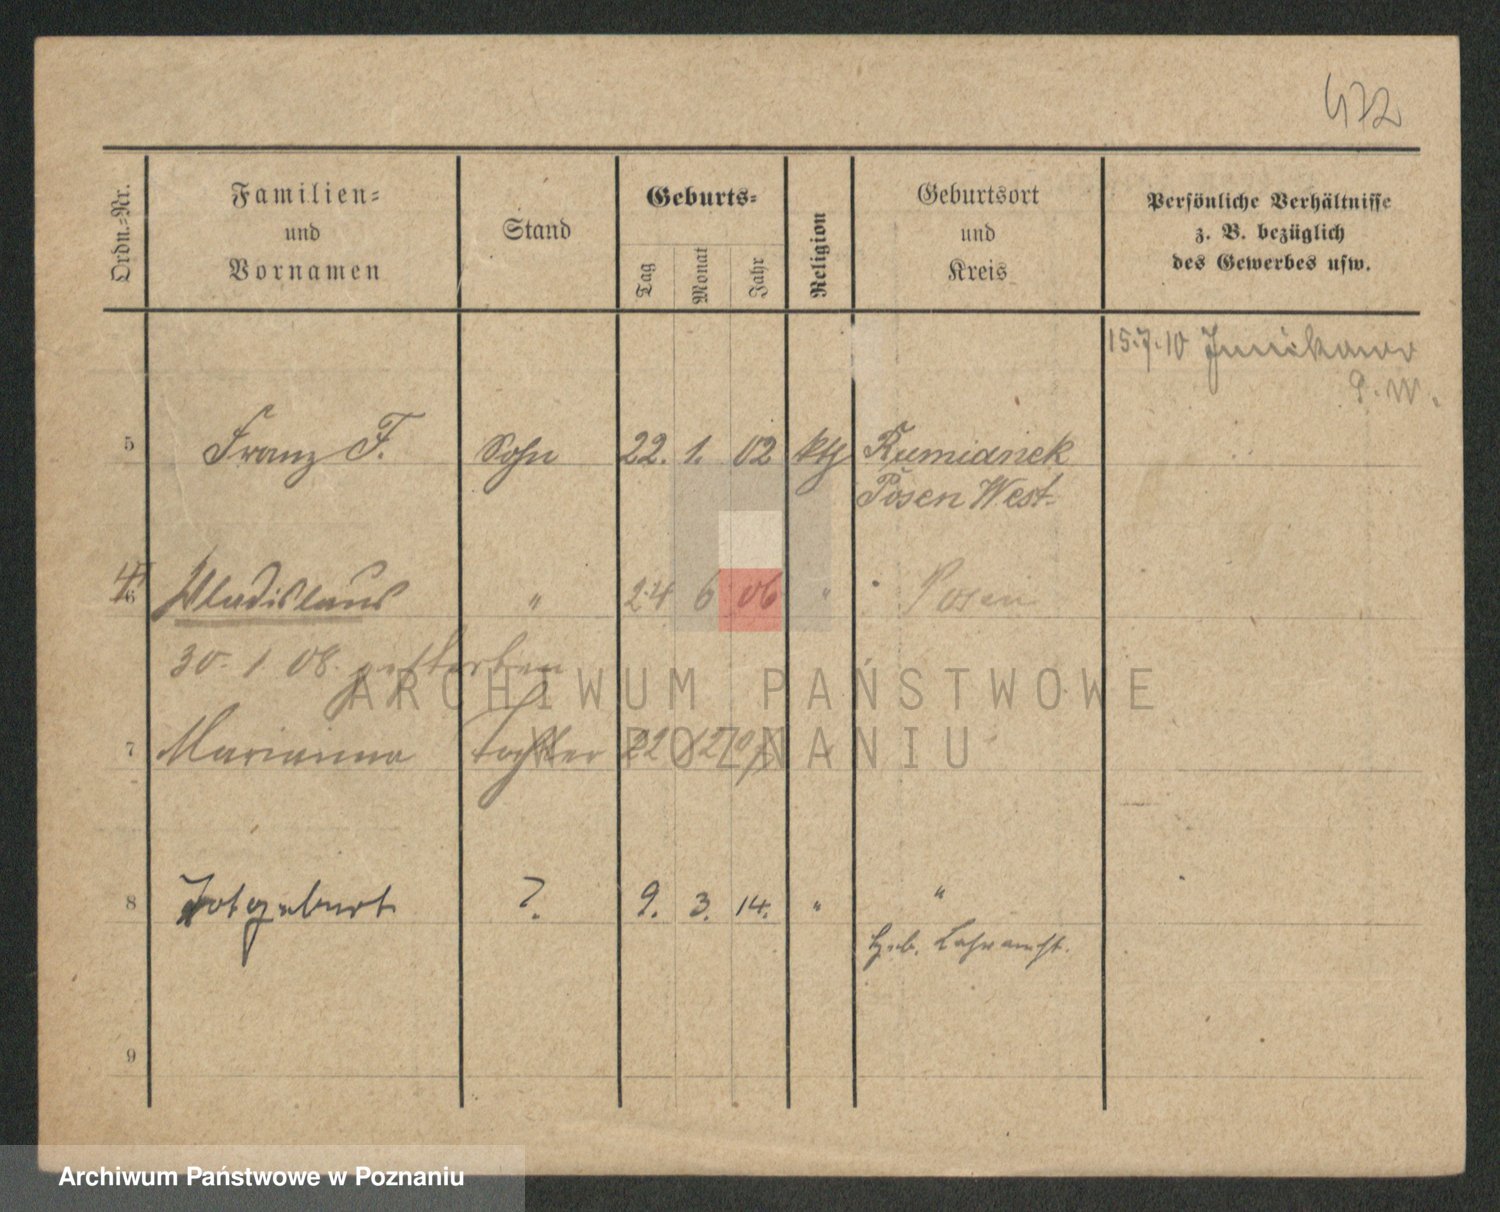 472
Ordn.-Nr.
Familien-
und
Vornamen
Stand
Geburts-
Tag
Monat
Jahr
Religion
Geburtsort
und
Kreis
Persönliche Verhältnisse
z. B. bezüglich
des Gewerbes usw.
15.7.10 Junikowo
P. W.
5 Franz F. Sohn 22. 1. 02 kth Rumianek
Posen West
6 Wladislaus " 24 6 06 " Posen
30. 1 08. gestorben
7 Marianna Tochter 22 12 07
8 Totgeburt ?. 9. 3. 14. " "
9
ARCHIWUM PAŃSTWOWE
W POZNANIU
Archiwum Państwowe w Poznaniu